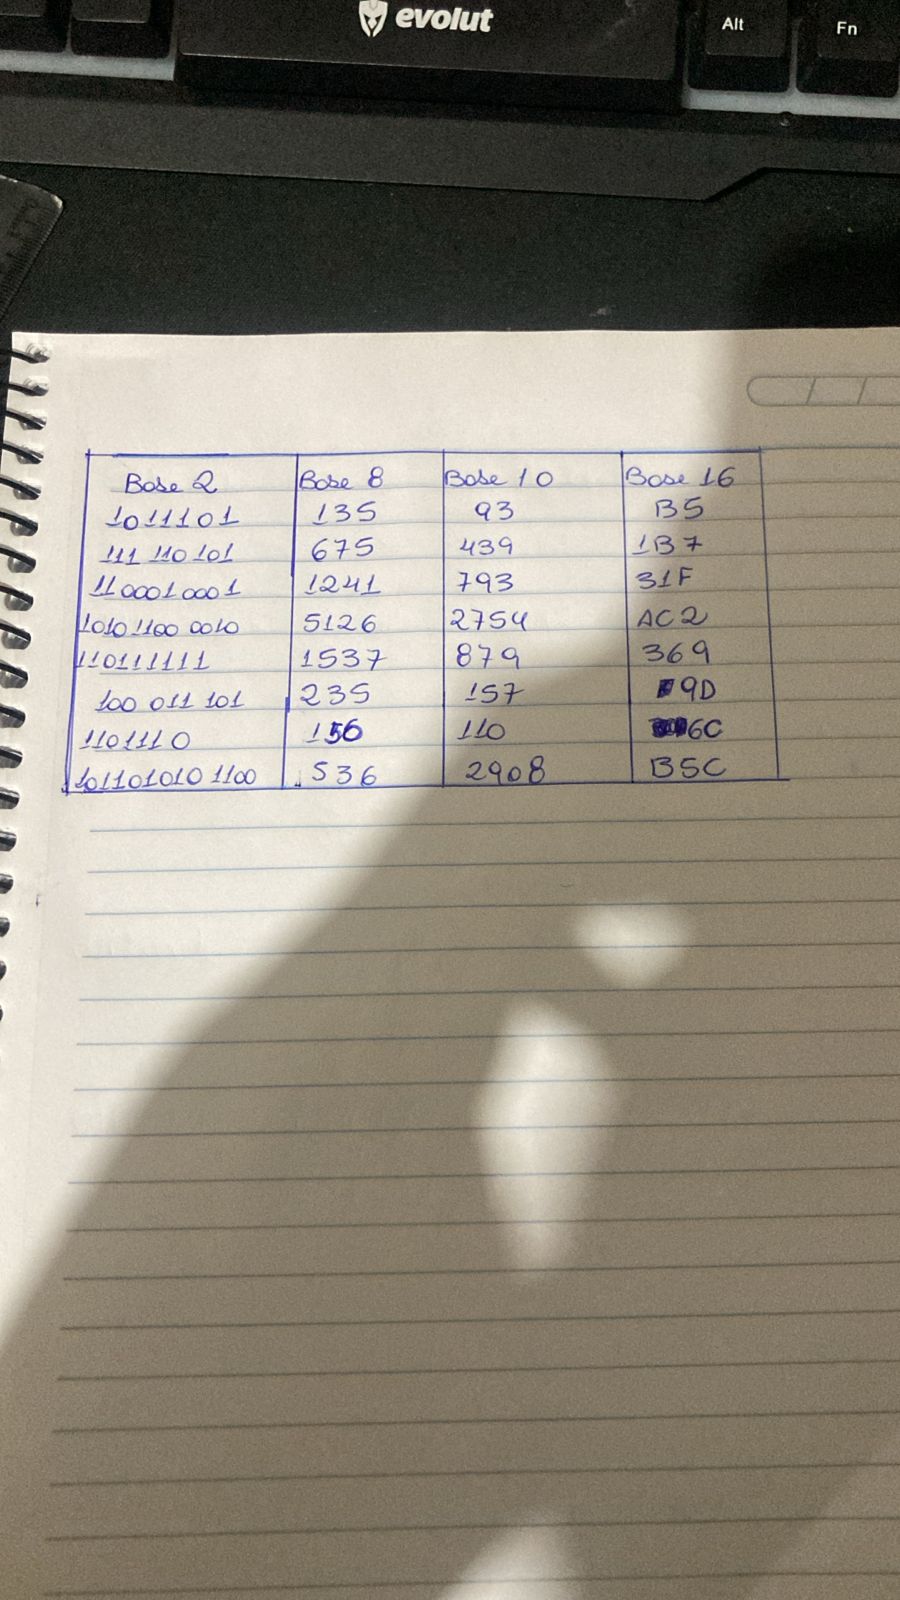 evolut
Alt
Fn
Base 2 Base 8 Base 10 Base 16
1011101 135 93 B5
111 110 101 675 439 1B7
110001 0001 1241 793 31F
1010 1100 0010 5126 2754 AC2
110111111 1537 879 369
100 011 101 235 157 9D
1101110 156 110 6C
101101010 1100 536 2908 B5C